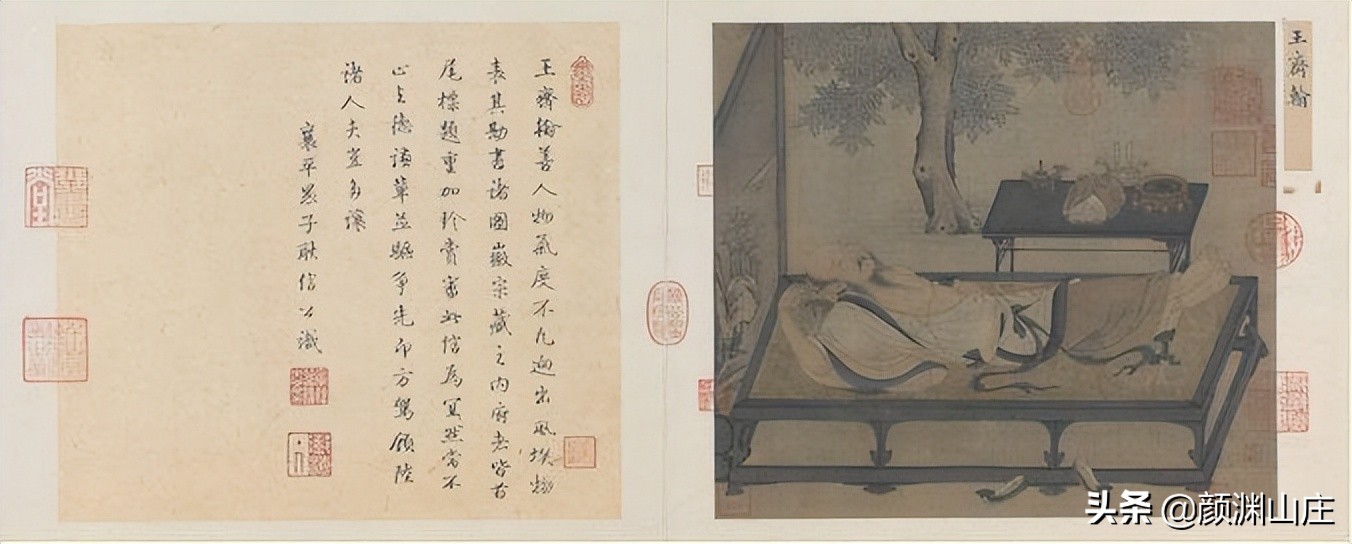 王齊翰
王齊翰善人物氣度不凡迥出風埃物
表其勘書諸圖徽宗藏之内府 皆首
尾標題重加珍賞審此信為 然當不
止與德謙輩並驅爭先即方駕顧陸
諸人夫豈多讓
襄平 子耿信公識
头条 @颜渊山庄